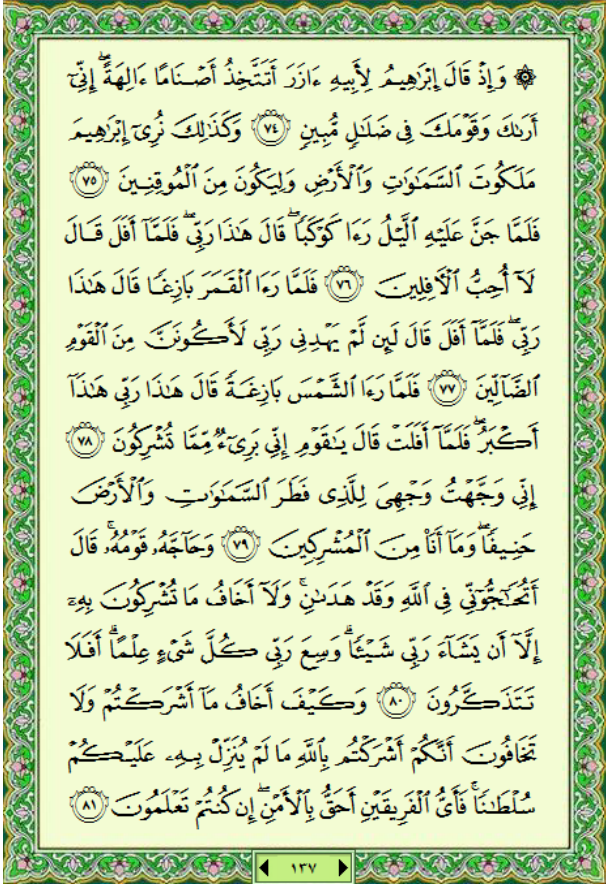 ۞ وَإِذْ قَالَ إِبْرَٰهِيمُ لِأَبِيهِ ءَازَرَ أَتَتَّخِذُ أَصْنَامًا ءَالِهَةً ۖ إِنِّىٓ
أَرَىٰكَ وَقَوْمَكَ فِى ضَلَٰلٍ مُّبِينٍ ﴿٧٤﴾ وَكَذَٰلِكَ نُرِىٓ إِبْرَٰهِيمَ
مَلَكُوتَ ٱلسَّمَٰوَٰتِ وَٱلْأَرْضِ وَلِيَكُونَ مِنَ ٱلْمُوقِنِينَ ﴿٧٥﴾
فَلَمَّا جَنَّ عَلَيْهِ ٱلَّيْلُ رَءَا كَوْكَبًا ۖ قَالَ هَٰذَا رَبِّى ۖ فَلَمَّآ أَفَلَ قَالَ
لَآ أُحِبُّ ٱلْءَافِلِينَ ﴿٧٦﴾ فَلَمَّا رَءَا ٱلْقَمَرَ بَازِغًا قَالَ هَٰذَا
رَبِّى ۖ فَلَمَّآ أَفَلَ قَالَ لَئِن لَّمْ يَهْدِنِى رَبِّى لَأَكُونَنَّ مِنَ ٱلْقَوْمِ
ٱلضَّآلِّينَ ﴿٧٧﴾ فَلَمَّا رَءَا ٱلشَّمْسَ بَازِغَةً قَالَ هَٰذَا رَبِّى هَٰذَآ
أَكْبَرُ ۖ فَلَمَّآ أَفَلَتْ قَالَ يَٰقَوْمِ إِنِّى بَرِىٓءٌ مِّمَّا تُشْرِكُونَ ﴿٧٨﴾
إِنِّى وَجَّهْتُ وَجْهِىَ لِلَّذِى فَطَرَ ٱلسَّمَٰوَٰتِ وَٱلْأَرْضَ
حَنِيفًا ۖ وَمَآ أَنَا۠ مِنَ ٱلْمُشْرِكِينَ ﴿٧٩﴾ وَحَآجَّهُۥ قَوْمُهُۥ ۚ قَالَ
أَتُحَٰٓجُّوٓنِّى فِى ٱللَّهِ وَقَدْ هَدَىٰنِ ۚ وَلَآ أَخَافُ مَا تُشْرِكُونَ بِهِۦٓ
إِلَّآ أَن يَشَآءَ رَبِّى شَيْـًٔا ۗ وَسِعَ رَبِّى كُلَّ شَىْءٍ عِلْمًا ۗ أَفَلَا
تَتَذَكَّرُونَ ﴿٨٠﴾ وَكَيْفَ أَخَافُ مَآ أَشْرَكْتُمْ وَلَا
تَخَافُونَ أَنَّكُمْ أَشْرَكْتُم بِٱللَّهِ مَا لَمْ يُنَزِّلْ بِهِۦ عَلَيْكُمْ
سُلْطَٰنًا ۚ فَأَىُّ ٱلْفَرِيقَيْنِ أَحَقُّ بِٱلْأَمْنِ ۖ إِن كُنتُمْ تَعْلَمُونَ ﴿٨١﴾
١٣٧